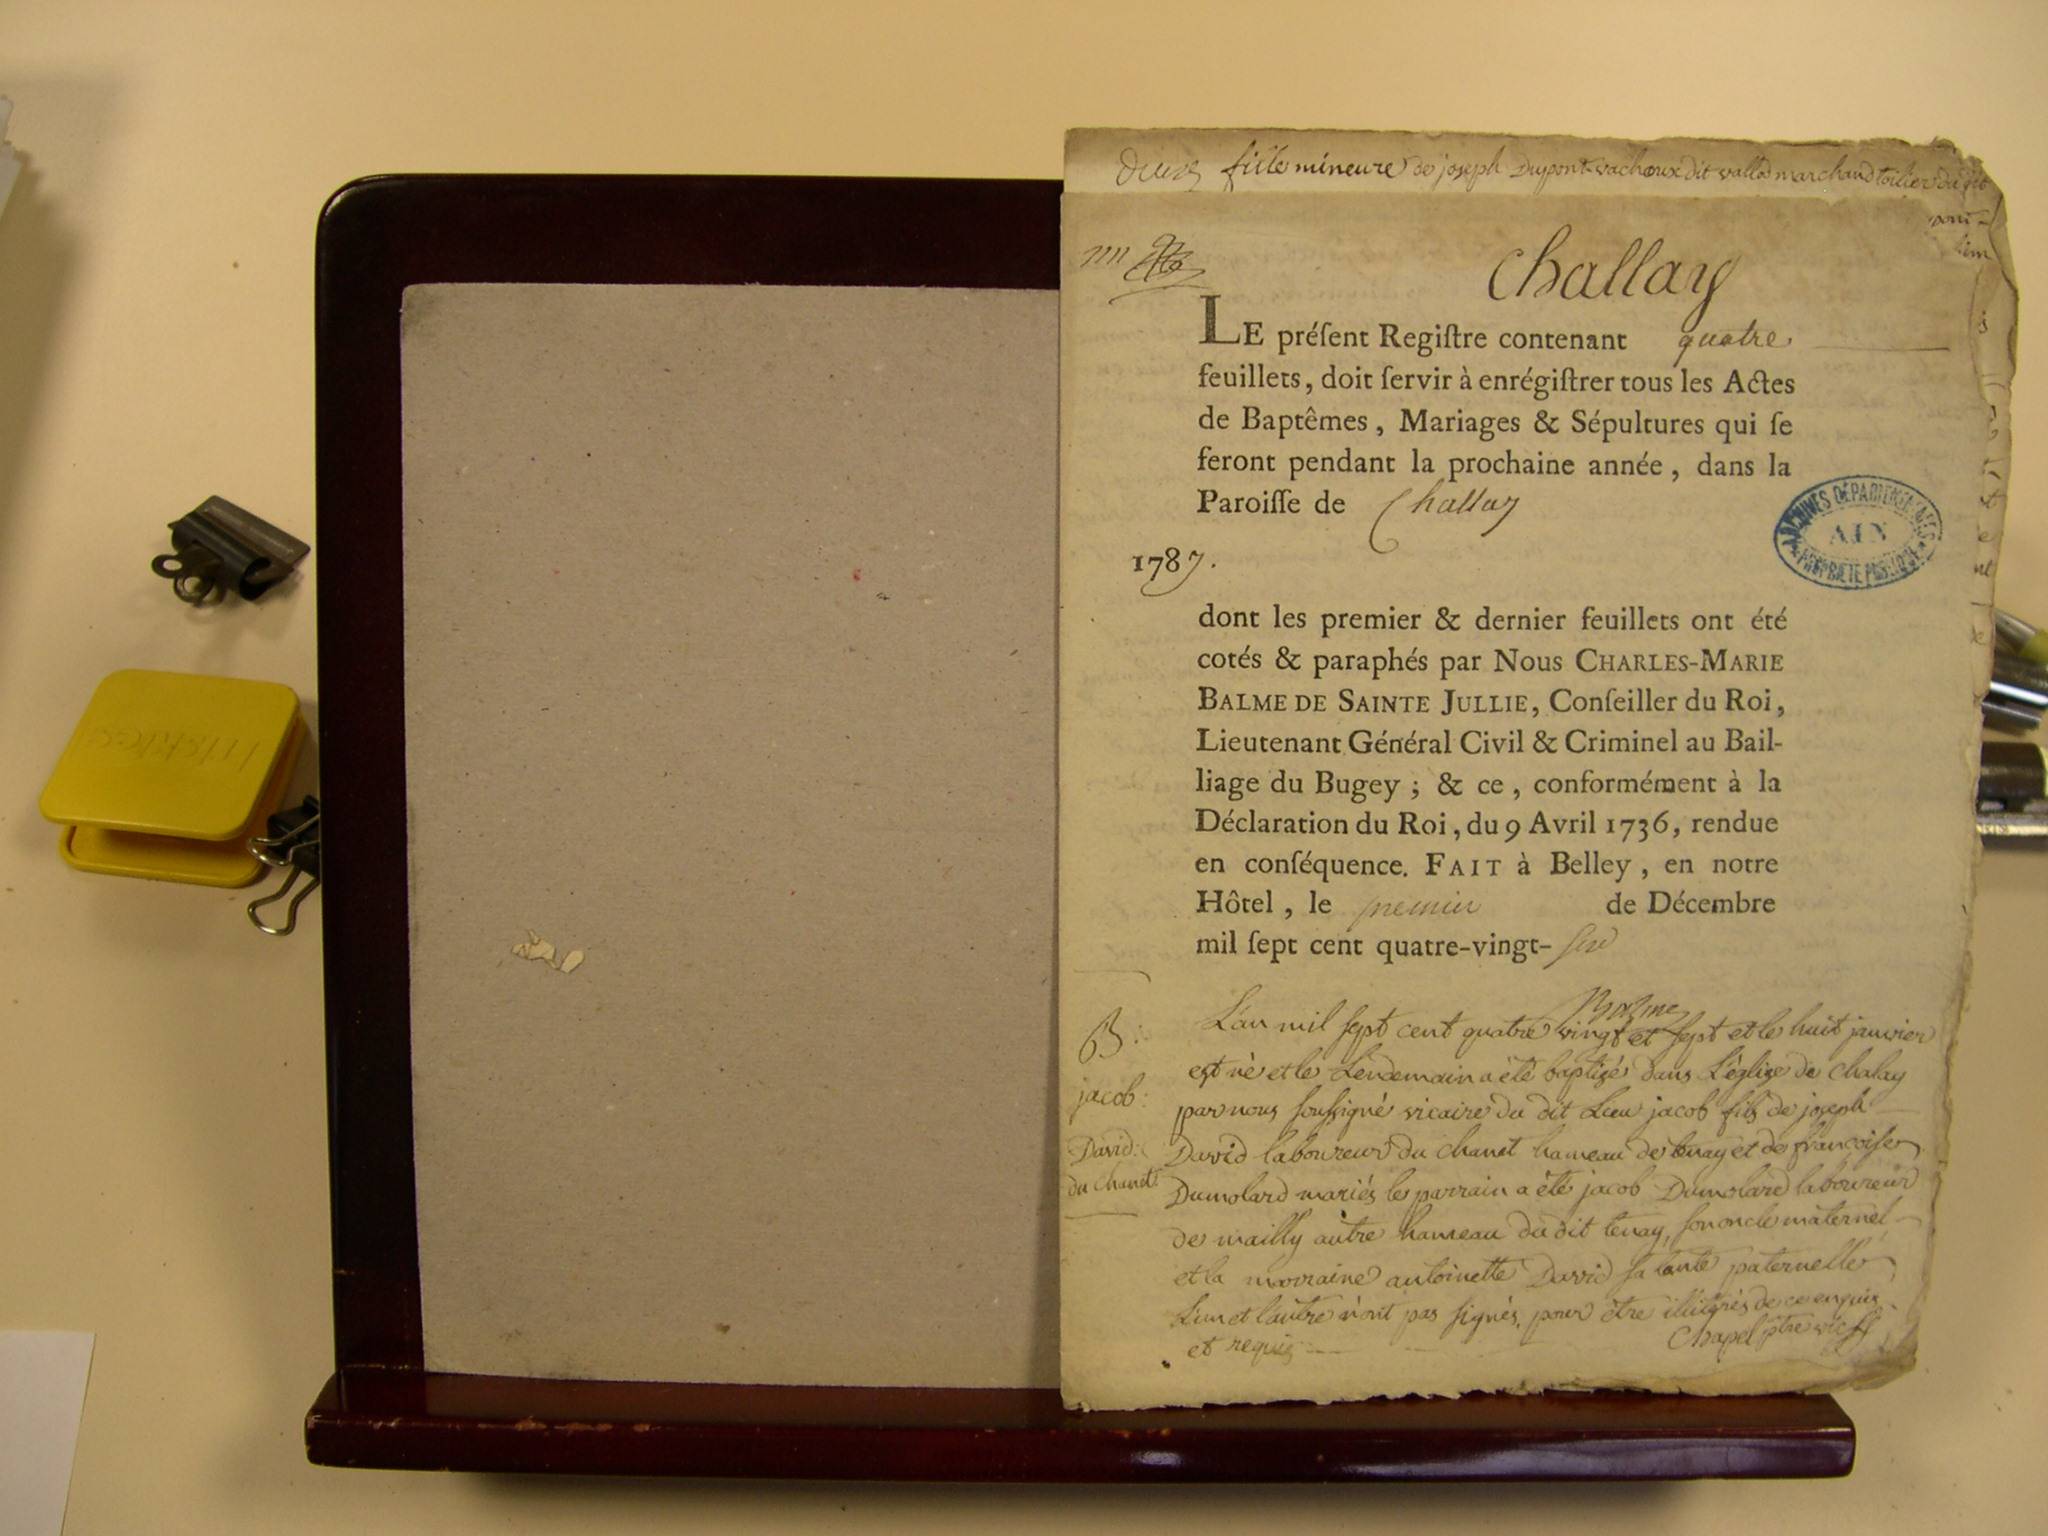 fille mineure de joseph Dupont-vachoux dit vallod marchand toilier du dit
challay
LE préſent Regiſtre contenant quatre
feuillets, doit ſervir à enrégiſtrer tous les Actes
de Baptêmes, Mariages & Sépultures qui ſe
feront pendant la prochaine année, dans la
Paroiſſe de Challay
ARCHIVES DÉPARTEMENTALES
AIN
PROPRIÉTÉ PUBLIQUE
1787.
dont les premier & dernier feuillets ont été
cotés & paraphés par Nous CHARLES-MARIE
BALME DE SAINTE JULLIE, Conſeiller du Roi,
Lieutenant Général Civil & Criminel au Bail-
liage du Bugey ; & ce, conformément à la
Déclaration du Roi, du 9 Avril 1736, rendue
en conſéquence. FAIT à Belley, en notre
Hôtel, le premier de Décembre
mil ſept cent quatre-vingt-six
Balme
B:
jacob:
David:
du chanet
L'an mil sept cent quatre vingt et sept et le huit janvier
est né et le Lendemain a été baptizé dans L'églize de chalay
par nous soussigné vicaire du dit Lieu jacob fils de joseph
David laboureur du chanet hameau de tenay et de françoise
Dumolard mariés le parrain a été jacob Dumolard laboureur
de mailly autre hameau du dit tenay, son oncle maternel
et la marraine antoinette David sa tante paternelle
L'un et l'autre n'ont pas signés, pour être illitérés de ce enquis
et requis
Chapel ptre vic